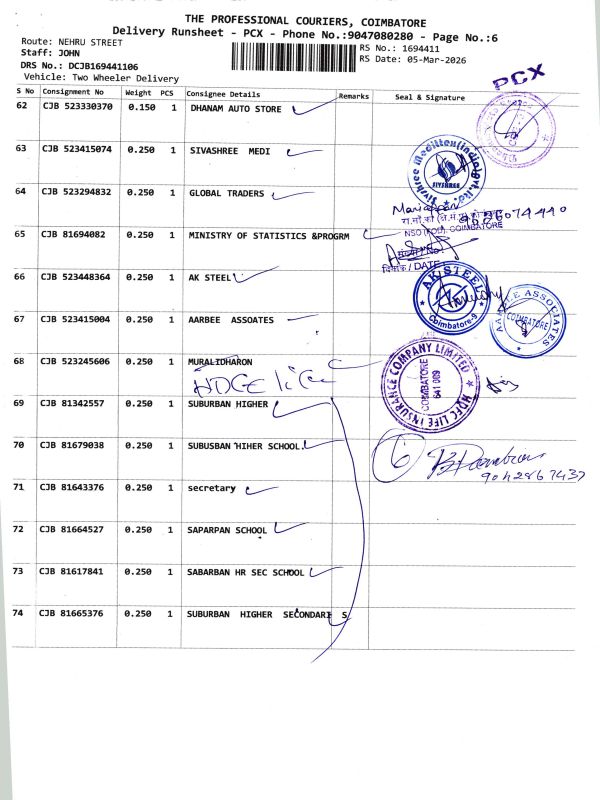 THE PROFESSIONAL COURIERS, COIMBATORE
Delivery Runsheet - PCX - Phone No.:9047080280 - Page No.:6
Route: NEHRU STREET
Staff: JOHN
DRS No.: DCJB169441106
Vehicle: Two Wheeler Delivery
RS No.: 1694411
RS Date: 05-Mar-2026
PCX
S No Consignment No Weight PCS Consignee Details Remarks Seal & Signature
62 CJB 523330370 0.150 1 DHANAM AUTO STORE
63 CJB 523415074 0.250 1 SIVASHREE MEDI
Sivshree Meditten(india)pvt.ltd
SIVSHREE
64 CJB 523294832 0.250 1 GLOBAL TRADERS
Mariappan
NSO (FOD), COIMBATORE
65 CJB 81694082 0.250 1 MINISTRY OF STATISTICS &PROGRM
दिनांक / DATE
66 CJB 523448364 0.250 1 AK STEEL
AK STEEL
Coimbatore-9
67 CJB 523415004 0.250 1 AARBEE ASSOATES
AARBEE ASSOCIATES
COIMBATORE
68 CJB 523245606 0.250 1 MURALIDHARON
HDGE lice
HDFC LIFE INSURANCE COMPANY LIMITED
COIMBATORE
641 009
69 CJB 81342557 0.250 1 SUBURBAN HIGHER
70 CJB 81679038 0.250 1 SUBUSBAN HIHER SCHOOL.
6
9042867437
71 CJB 81643376 0.250 1 secretary
72 CJB 81664527 0.250 1 SAPARPAN SCHOOL
73 CJB 81617841 0.250 1 SABARBAN HR SEC SCHOOL
74 CJB 81665376 0.250 1 SUBURBAN HIGHER SECONDARI S